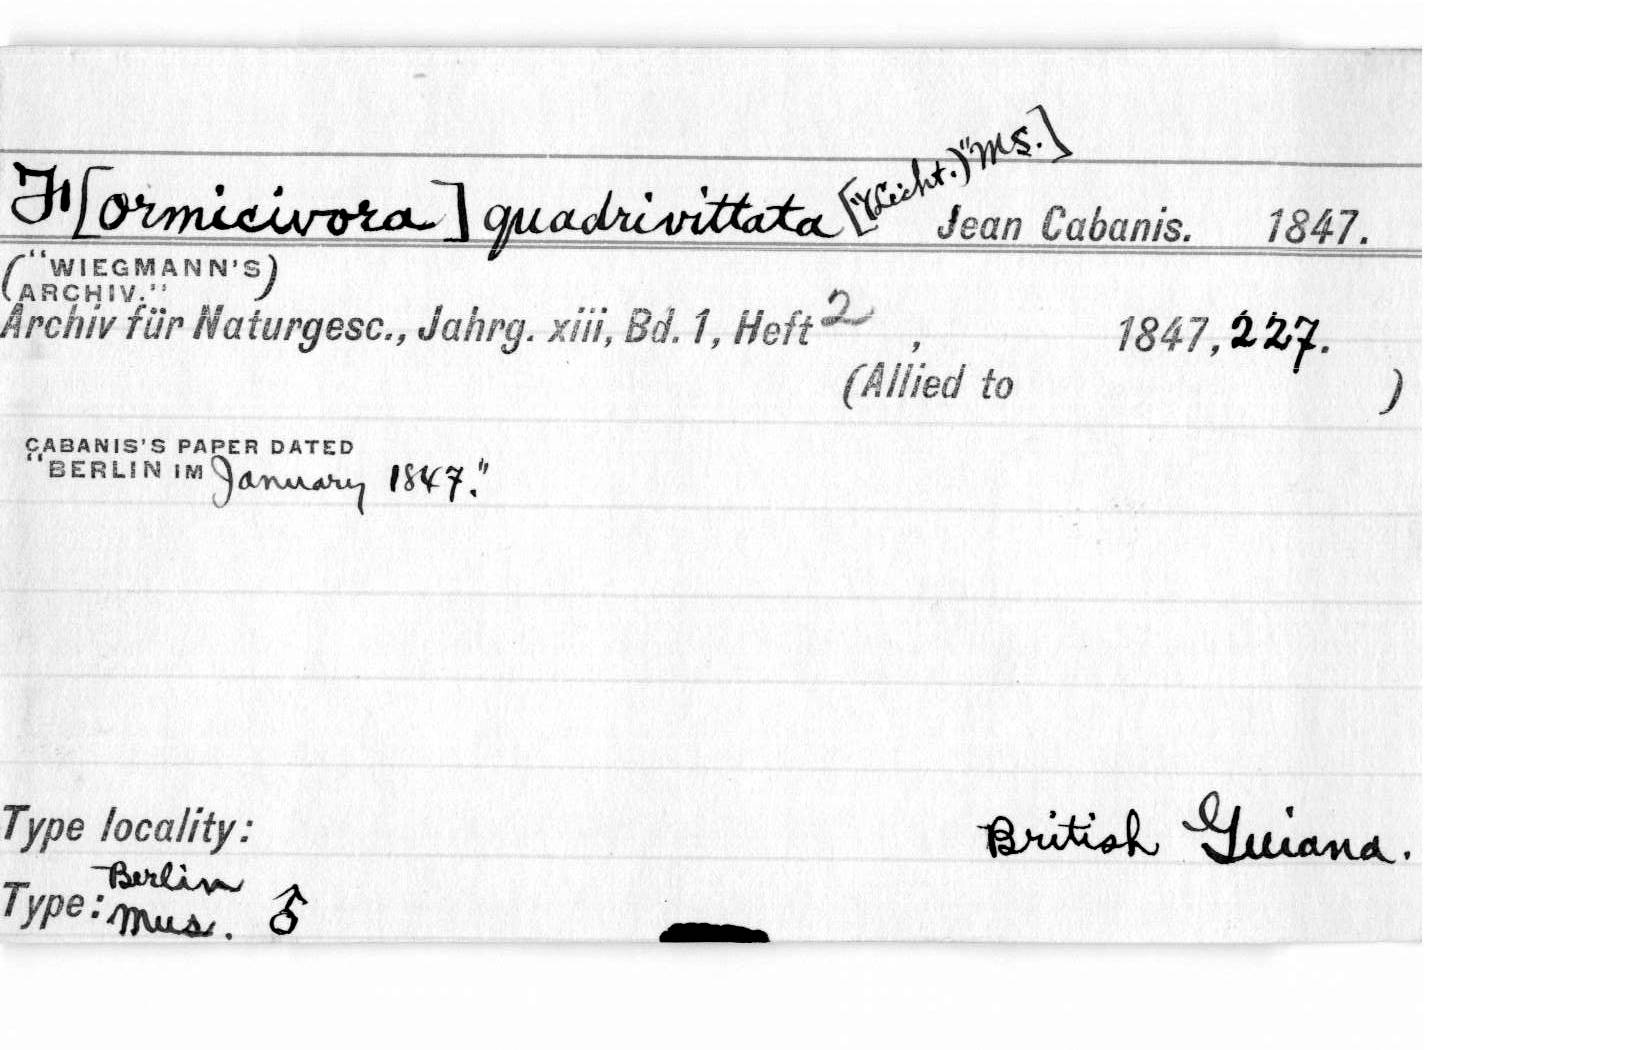 F[ormicivora] quadrivittata ["(Licht.)" MS.] Jean Cabanis. 1847.
("WIEGMANN'S
ARCHIV.")
Archiv für Naturgesc., Jahrg. xiii, Bd. 1, Heft 2 , 1847, 227.
(Allied to )
CABANIS'S PAPER DATED
"BERLIN IM January 1847."
Type locality: British Guiana.
Type: Berlin
Mus. ♂